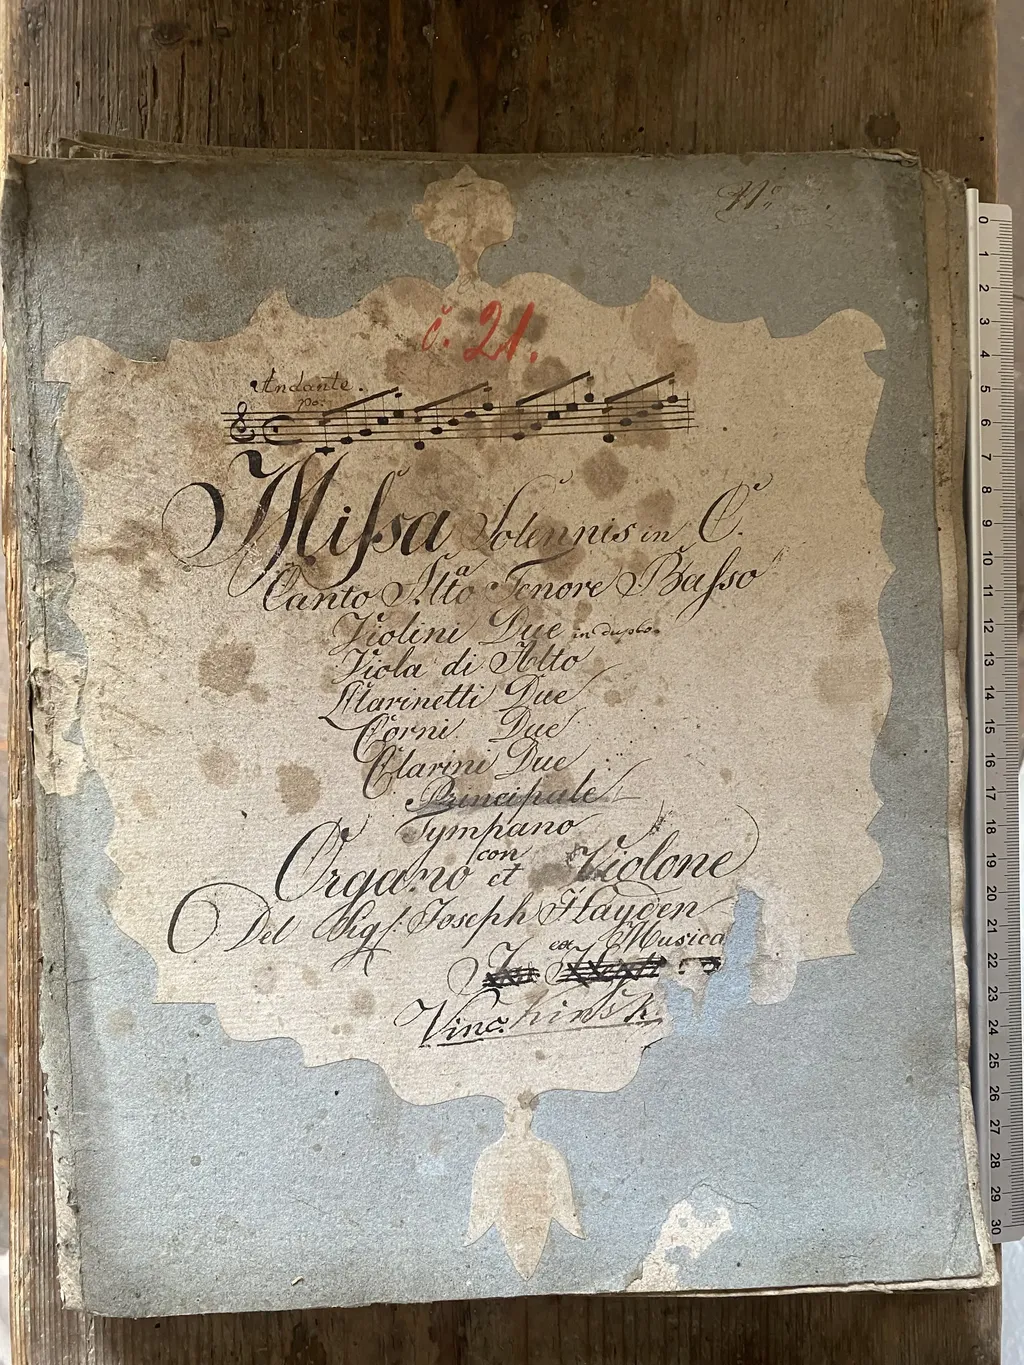 No:
č. 21.
Andante.
po:
Missa Solennis in C.
Canto Alto Tenore Basso
Violini Due in duplo.
Viola di Alto
Clarinetti Due
Corni Due
Clarini Due
Principale
Tympano
con
Organo et Violone
Del Sigl: Joseph Hayden
ex Musica
Vinc.
0
1
2
3
4
5
6
7
8
9
10
11
12
13
14
15
16
17
18
19
20
21
22
23
24
25
26
27
28
29
30